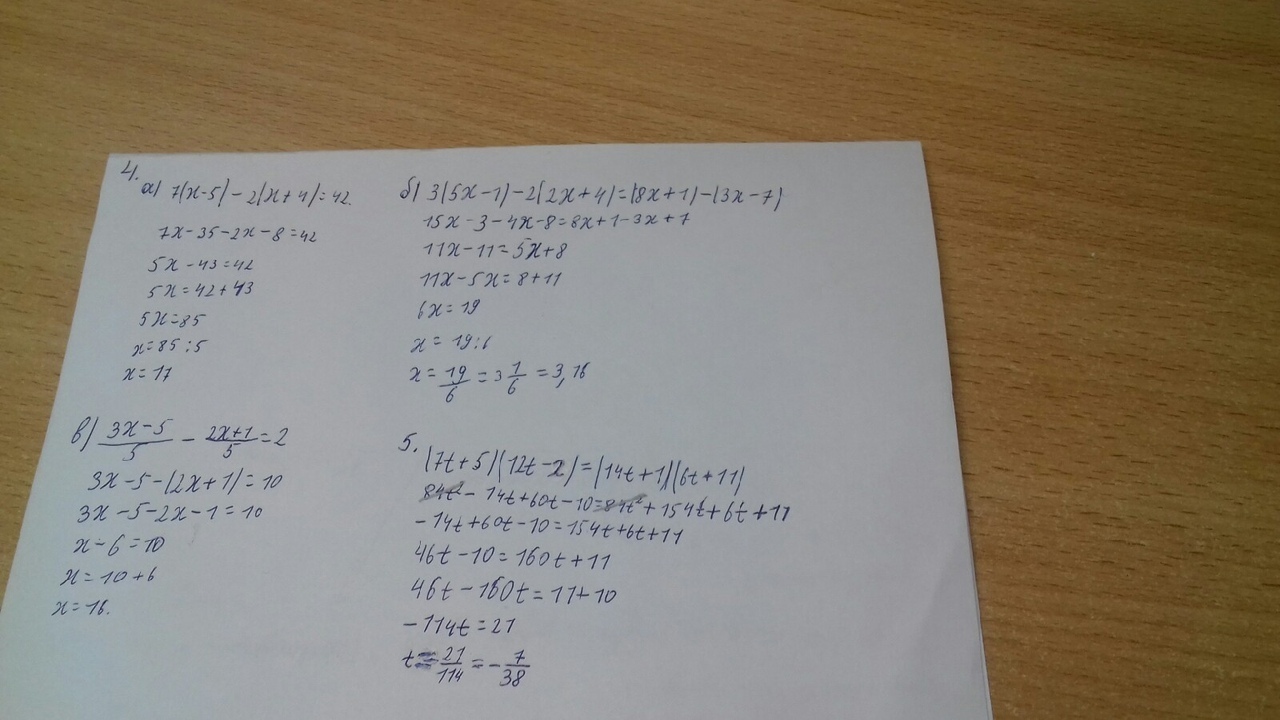 4.
а) 7(x-5)-2(x+4)=42.
7x-35-2x-8=42
5x-43=42
5x=42+43
5x=85
x=85:5
x=17
б) 3(5x-1)-2(2x+4)=(8x+1)-(3x-7)
15x-3-4x-8=8x+1-3x+7
11x-11=5x+8
11x-5x=8+11
6x=19
x=19:6
x=19/6=3 1/6=3,16
в) (3x-5)/5 - (2x+1)/5=2
3x-5-(2x+1)=10
3x-5-2x-1=10
x-6=10
x=10+6
x=16.
5.
(7t+5)(12t-2)=(14t+1)(6t+11)
84t²-14t+60t-10=84t²+154t+6t+11
-14t+60t-10=154t+6t+11
46t-10=160t+11
46t-160t=11+10
-114t=21
t=-21/114=-7/38